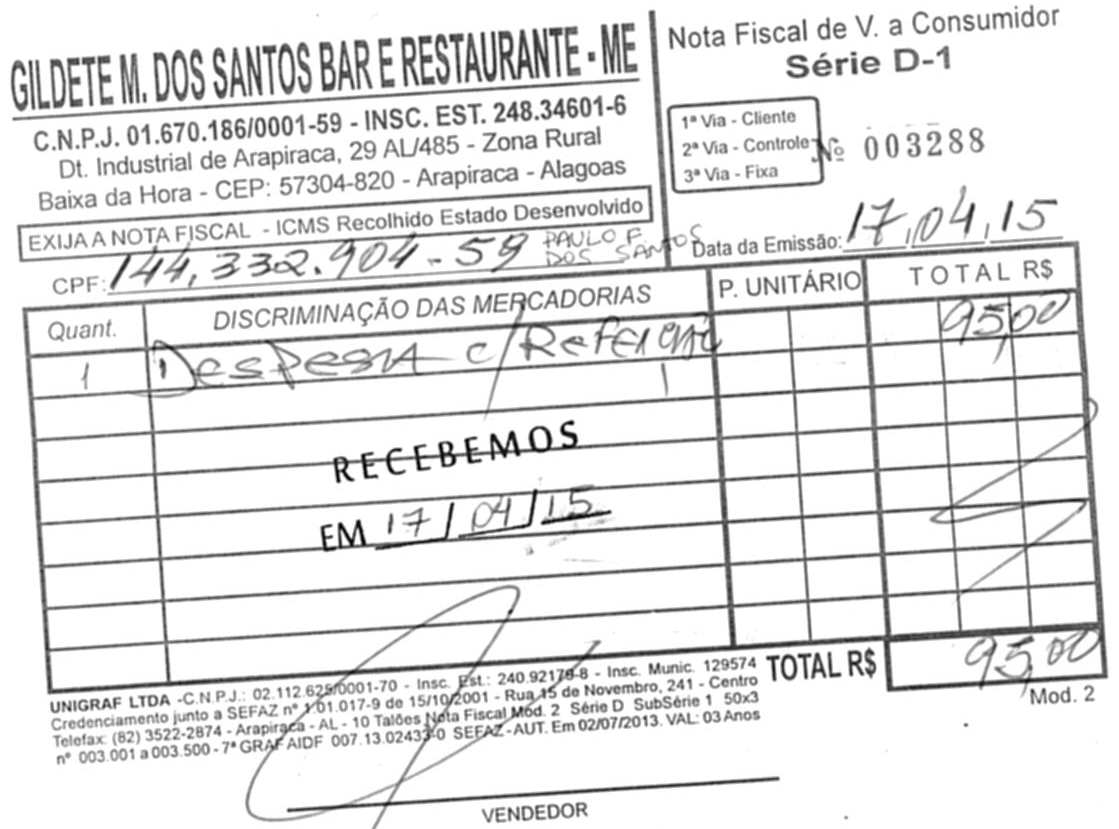 GILDETE M. DOS SANTOS BAR E RESTAURANTE - ME
C.N.P.J. 01.670.186/0001-59 - INSC. EST. 248.34601-6
Dt. Industrial de Arapiraca, 29 AL/485 - Zona Rural
Baixa da Hora - CEP: 57304-820 - Arapiraca - Alagoas
EXIJA A NOTA FISCAL - ICMS Recolhido Estado Desenvolvido
CPF: 144.332.904-59 PAULO F. DOS SANTOS
Nota Fiscal de V. a Consumidor
Série D-1
1ª Via - Cliente
2ª Via - Controle
3ª Via - Fixa
Nº 003288
Data da Emissão: 17,04,15
Quant. DISCRIMINAÇÃO DAS MERCADORIAS P. UNITÁRIO TOTAL R$
1 Despesa c/ 95,00
RECEBEMOS
EM 17/04/15
TOTAL R$ 95,00
Mod. 2
UNIGRAF LTDA -C.N.P.J.: 02.112.625/0001-70 - Insc. Est.: 240.92179-8 - Insc. Munic. 129574
Credenciamento junto a SEFAZ nº 1.01.017-9 de 15/10/2001 - Rua 15 de Novembro, 241 - Centro
Telefax: (82) 3522-2874 - Arapiraca - AL - 10 Talões Nota Fiscal Mod. 2 Série D SubSérie 1 50x3
nº 003.001 a 003.500 - 7ª GRAF AIDF 007.13.02433-0 SEFAZ - AUT. Em 02/07/2013. VAL: 03 Anos
VENDEDOR